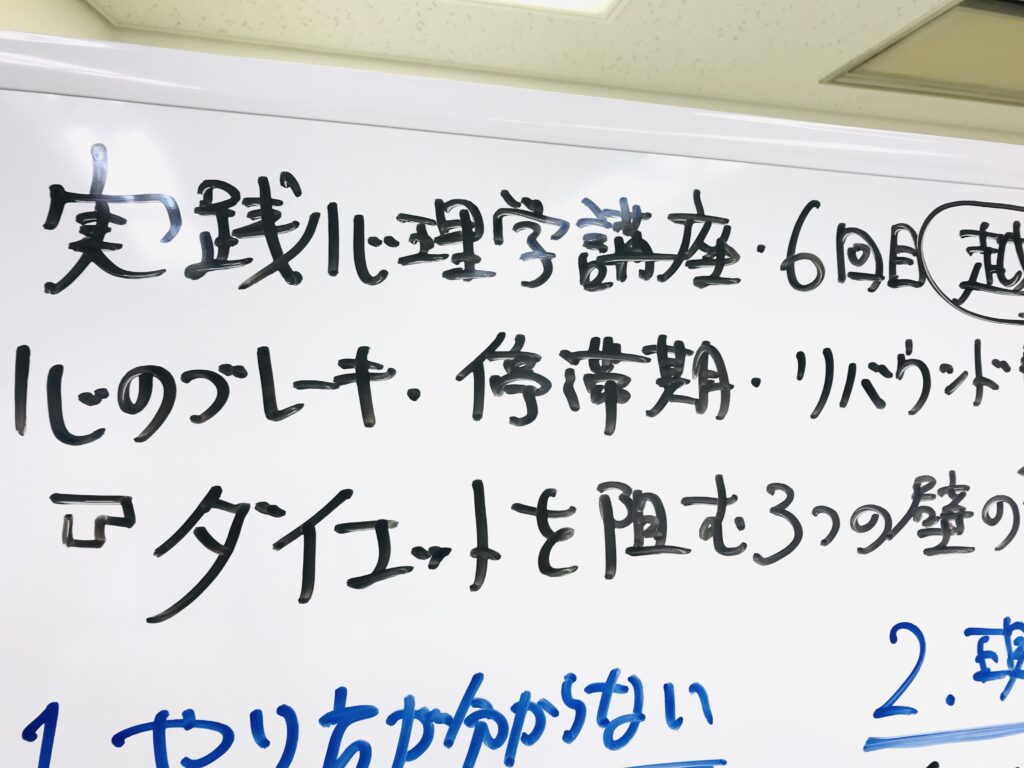 実践心理学講座・6回目 越
心のブレーキ・停滞期・リバウンド
『ダイエットを阻む3つの壁の
1. やり方が分からない
2. 現